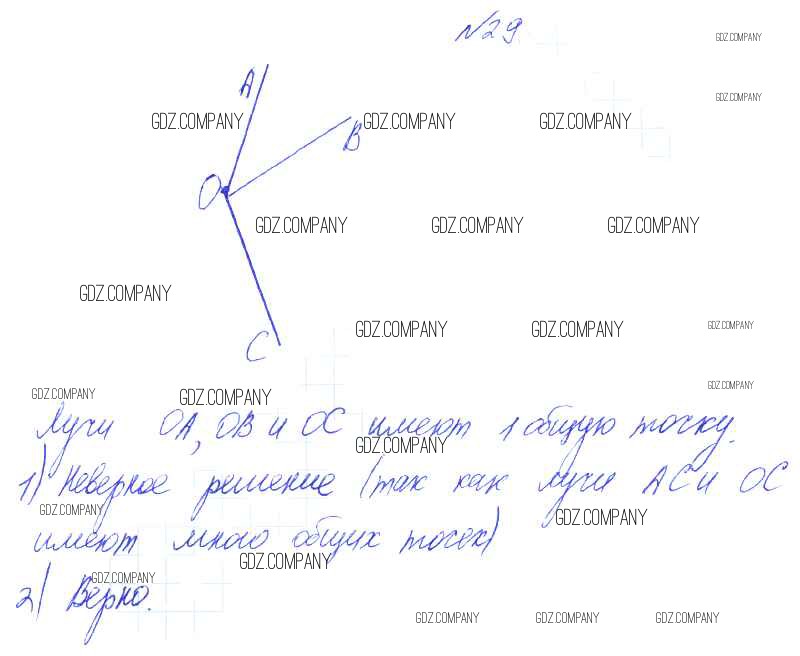 №29
GDZ.COMPANY
GDZ.COMPANY
A
GDZ.COMPANY
GDZ.COMPANY
GDZ.COMPANY
B
O
GDZ.COMPANY
GDZ.COMPANY
GDZ.COMPANY
GDZ.COMPANY
GDZ.COMPANY
GDZ.COMPANY
GDZ.COMPANY
C
GDZ.COMPANY
GDZ.COMPANY
GDZ.COMPANY
Лучи OA, OB и OC имеют 1 общую точку.
GDZ.COMPANY
1) Неверное решение (так как лучи AC и OC
GDZ.COMPANY
GDZ.COMPANY
имеют много общих точек)
GDZ.COMPANY
GDZ.COMPANY
2) Верно.
GDZ.COMPANY
GDZ.COMPANY
GDZ.COMPANY